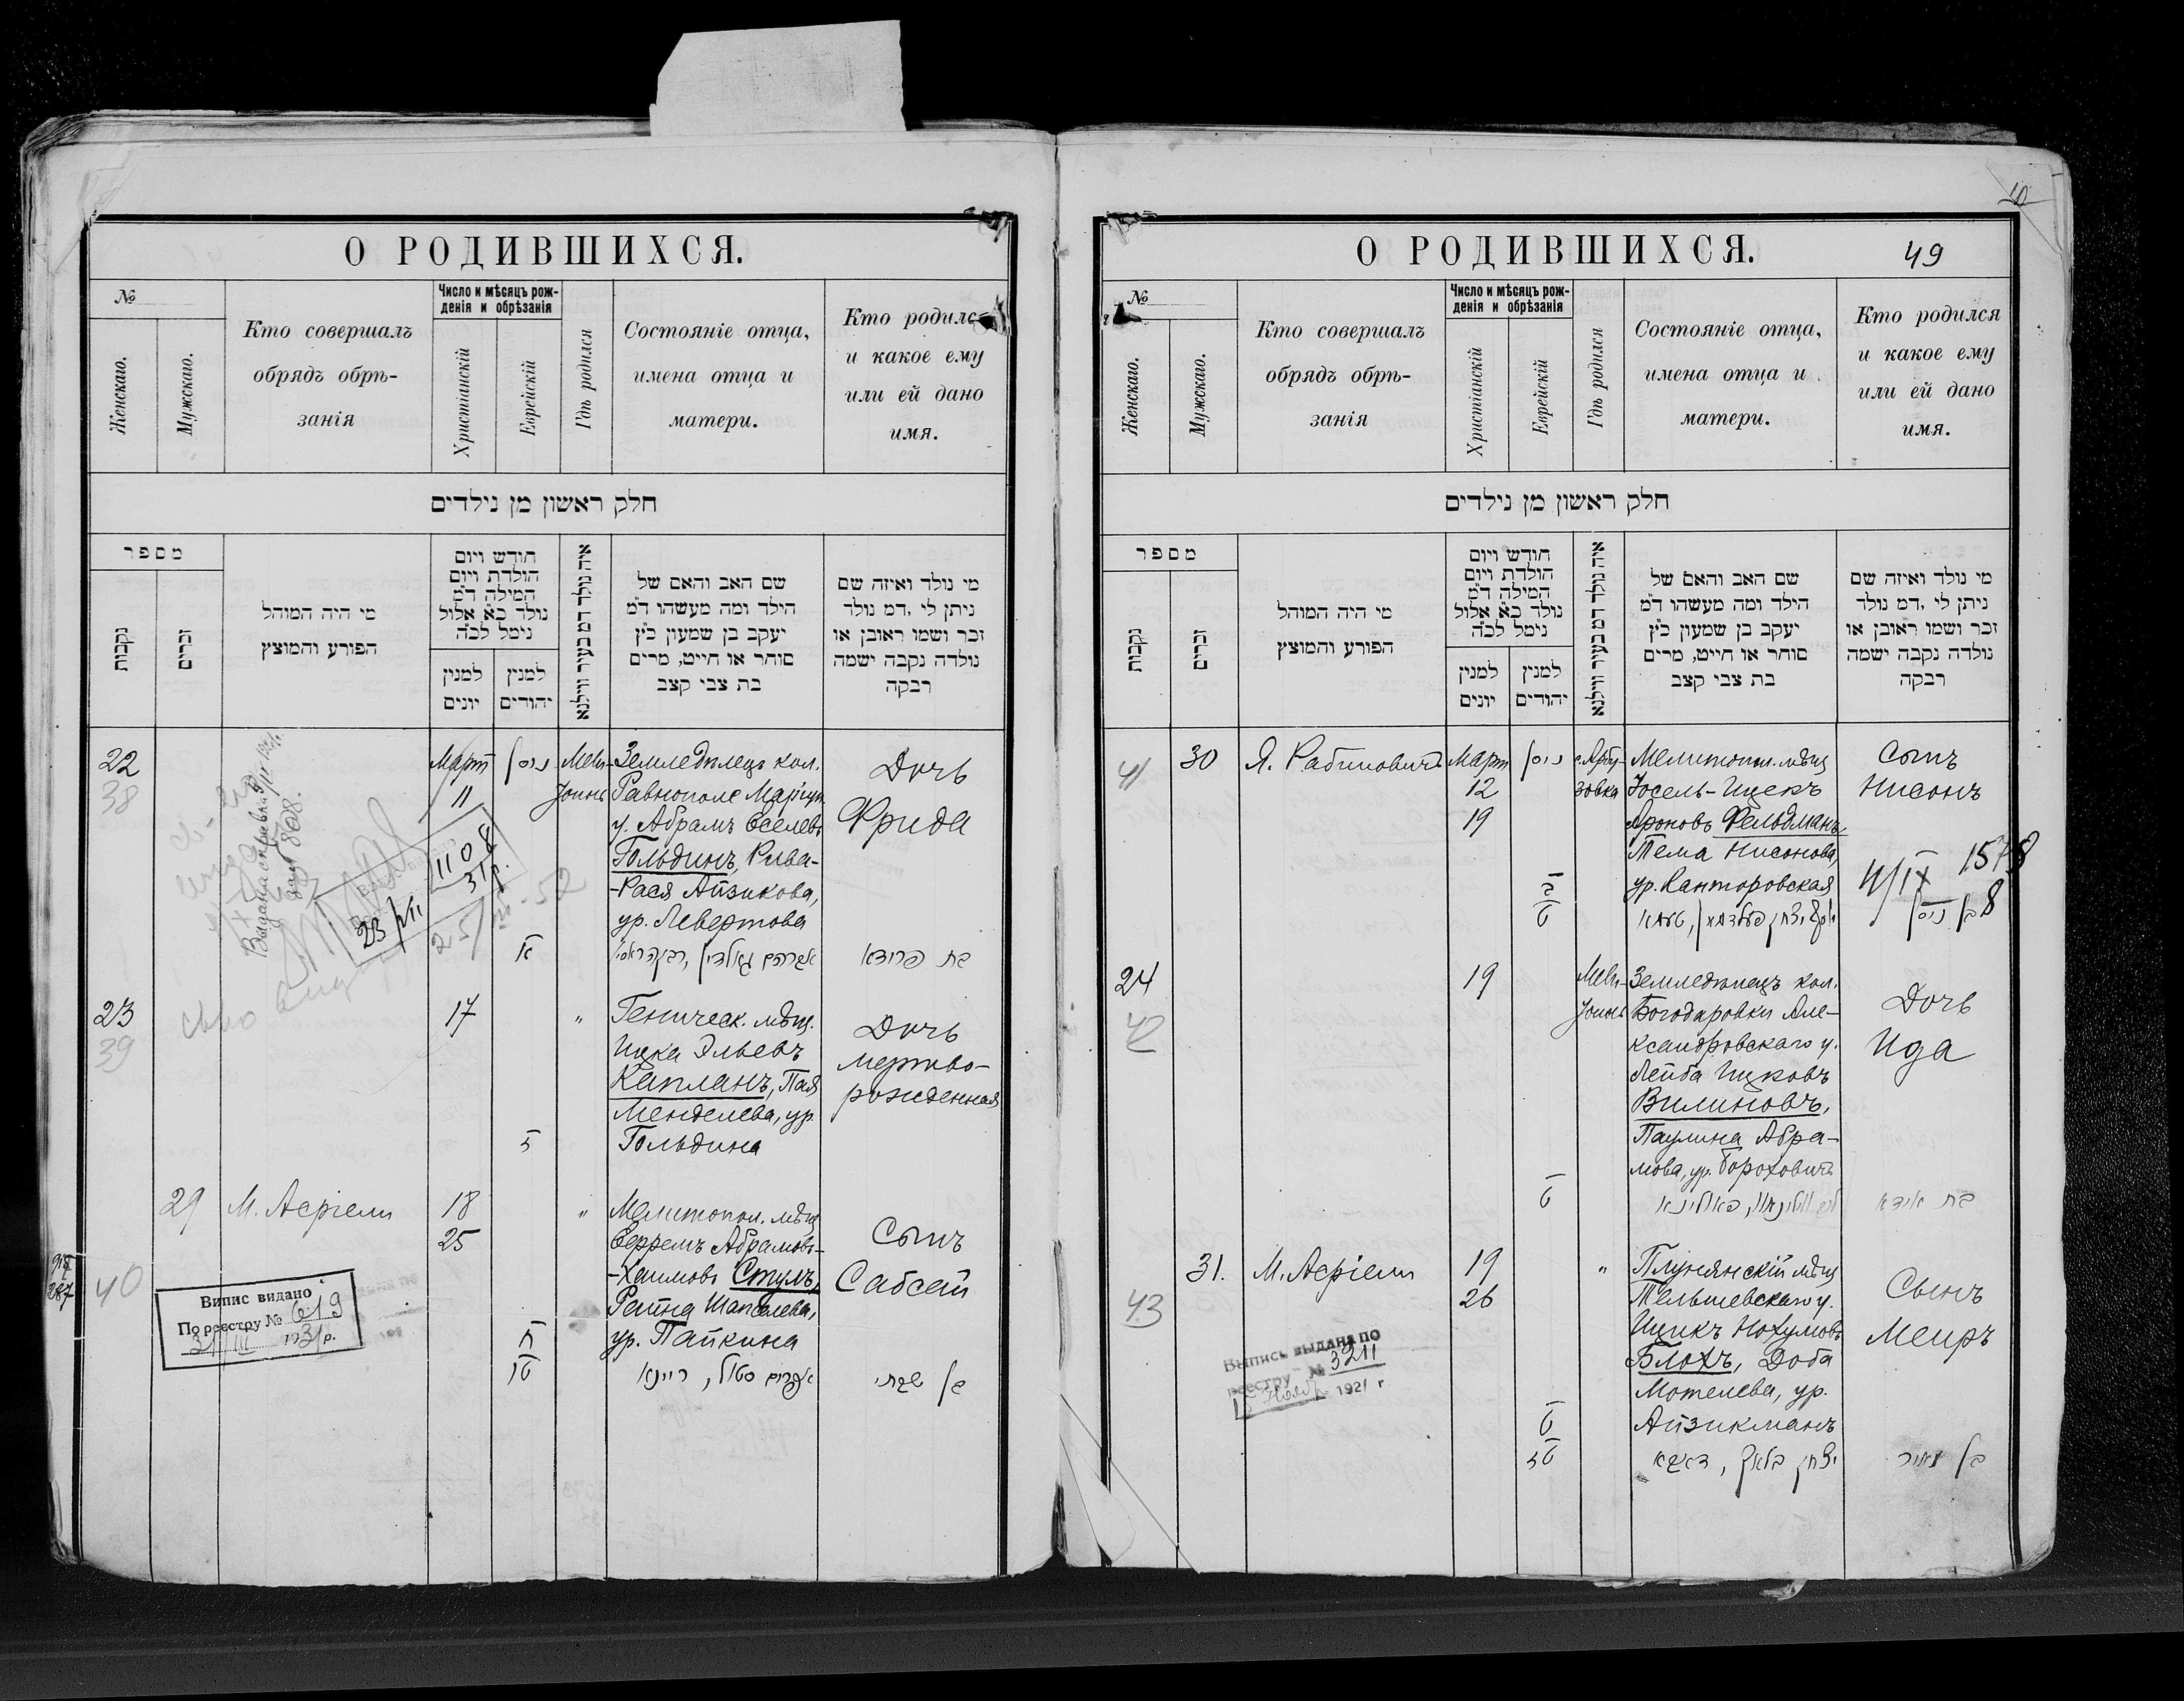 О РОДИВШИХСЯ.
№
Женскаго.
Мужскаго.
Кто совершалъ
обрядъ обрѣ-
занія
Число и мѣсяцъ рож-
денія и обрѣзанія
Христіанскій
Еврейскій
Гдѣ родился
Состояніе отца,
имена отца и
матери.
Кто родился
и какое ему
или ей дано
имя.
חלק ראשון מן נילדים
מספר
נקבות
זכרים
מי היה המוהל
הפורע והמוצץ
חודש ויום
הולדת ויום
המילה ד״מ
נולד כ״א אלול
נימל לכ״ה
למנין
יונים
למנין
יהודים
איה נולד דמ בעיר ווילנא
שם האב והאם של
הילד ומה מעשהו ד״מ
יעקב בן שמעון כ״ץ
סוחר או חייט, מרים
בת צבי קצב
מי נולד ואיזה שם
ניתן לי, דמ נולד
זכר ושמו ראובן או
נולדה נקבה ישמה
רבקה
22
38
Выдана справка
808.
1108
31 р.
23/VII
Март
11
ניסן
א
Мели-
тополь
Земледѣлецъ кол.
Равнополе Маріуп.
у. Абрамъ Еселевъ
Гольдинъ, Рива-
-Рася Айзикова,
ур. Левертова
אברהם גאלדין, רבקה ראסי
Дочь
Фрида
בת פרידא
23
39
17
ז
"
Геническ. мѣщ.
Ицка Эльевъ
Капланъ, Пая
Менделева, ур.
Гольдина
Дочь
мертво-
рожденная
29
40
М. Асріели
18
25
ח
טו
"
Мелитопол. мѣщ.
Ефремъ Абрамовъ-
-Хаимовъ Стулъ,
Рейна Шапселева,
ур. Пайкина
אפרים סטול, ריינא
Сынъ
Сабсай
בן שבתי
917
287
Випис видано
По реєстру № 619
31/III 1931 р.
О РОДИВШИХСЯ.
49
№
Женскаго.
Мужскаго.
Кто совершалъ
обрядъ обрѣ-
занія
Число и мѣсяцъ рож-
денія и обрѣзанія
Христіанскій
Еврейскій
Гдѣ родился
Состояніе отца,
имена отца и
матери.
Кто родился
и какое ему
или ей дано
имя.
חלק ראשון מן נילדים
מספר
נקבות
זכרים
מי היה המוהל
הפורע והמוצץ
חודש ויום
הולדת ויום
המילה ד״מ
נולד כ״א אלול
נימל לכ״ה
למנין
יונים
למנין
יהודים
איה נולד דמ בעיר ווילנא
שם האב והאם של
הילד ומה מעשהו ד״מ
יעקב בן שמעון כ״ץ
סוחר או חייט, מרים
בת צבי קצב
מי נולד ואיזה שם
ניתן לי, דמ נולד
זכר ושמו ראובן או
נולדה נקבה ישמה
רבקה
41
30
Я. Рабиновичъ
Март
12
19
ניסן
ב
ט
с. Арбу-
зовка
Мелитопол. мѣщ.
Іосель-Ицекъ
Ароновъ Фельдманъ,
Тема Нисонова,
ур. Канторовская
יוסף יצחק פעלדמאן, טעמא
Сынъ
Нисонъ
4/IX 1578
8
בן ניסן
24
42
19
ט
Мели-
тополь
Земледѣлецъ кол.
Богодаровки Але-
ксандровскаго у.
Лейба Ицковъ
Вилиновъ,
Паулина Абра-
мова, ур. Бороховичъ
פאולינא
Дочь
Ида
בת אידא
31.
43
М. Асріели
19
26
ט
טז
"
Плунянскій мѣщ.
Тельшевскаго у.
Ицикъ Нохумовъ
Блохъ, Доба
Мотелева, ур.
Айзикманъ
יצחק בלאך, דאבא
Сынъ
Меиръ
בן מאיר
Выпись выдана по
реестру № 3211
Нояб. 1921 г